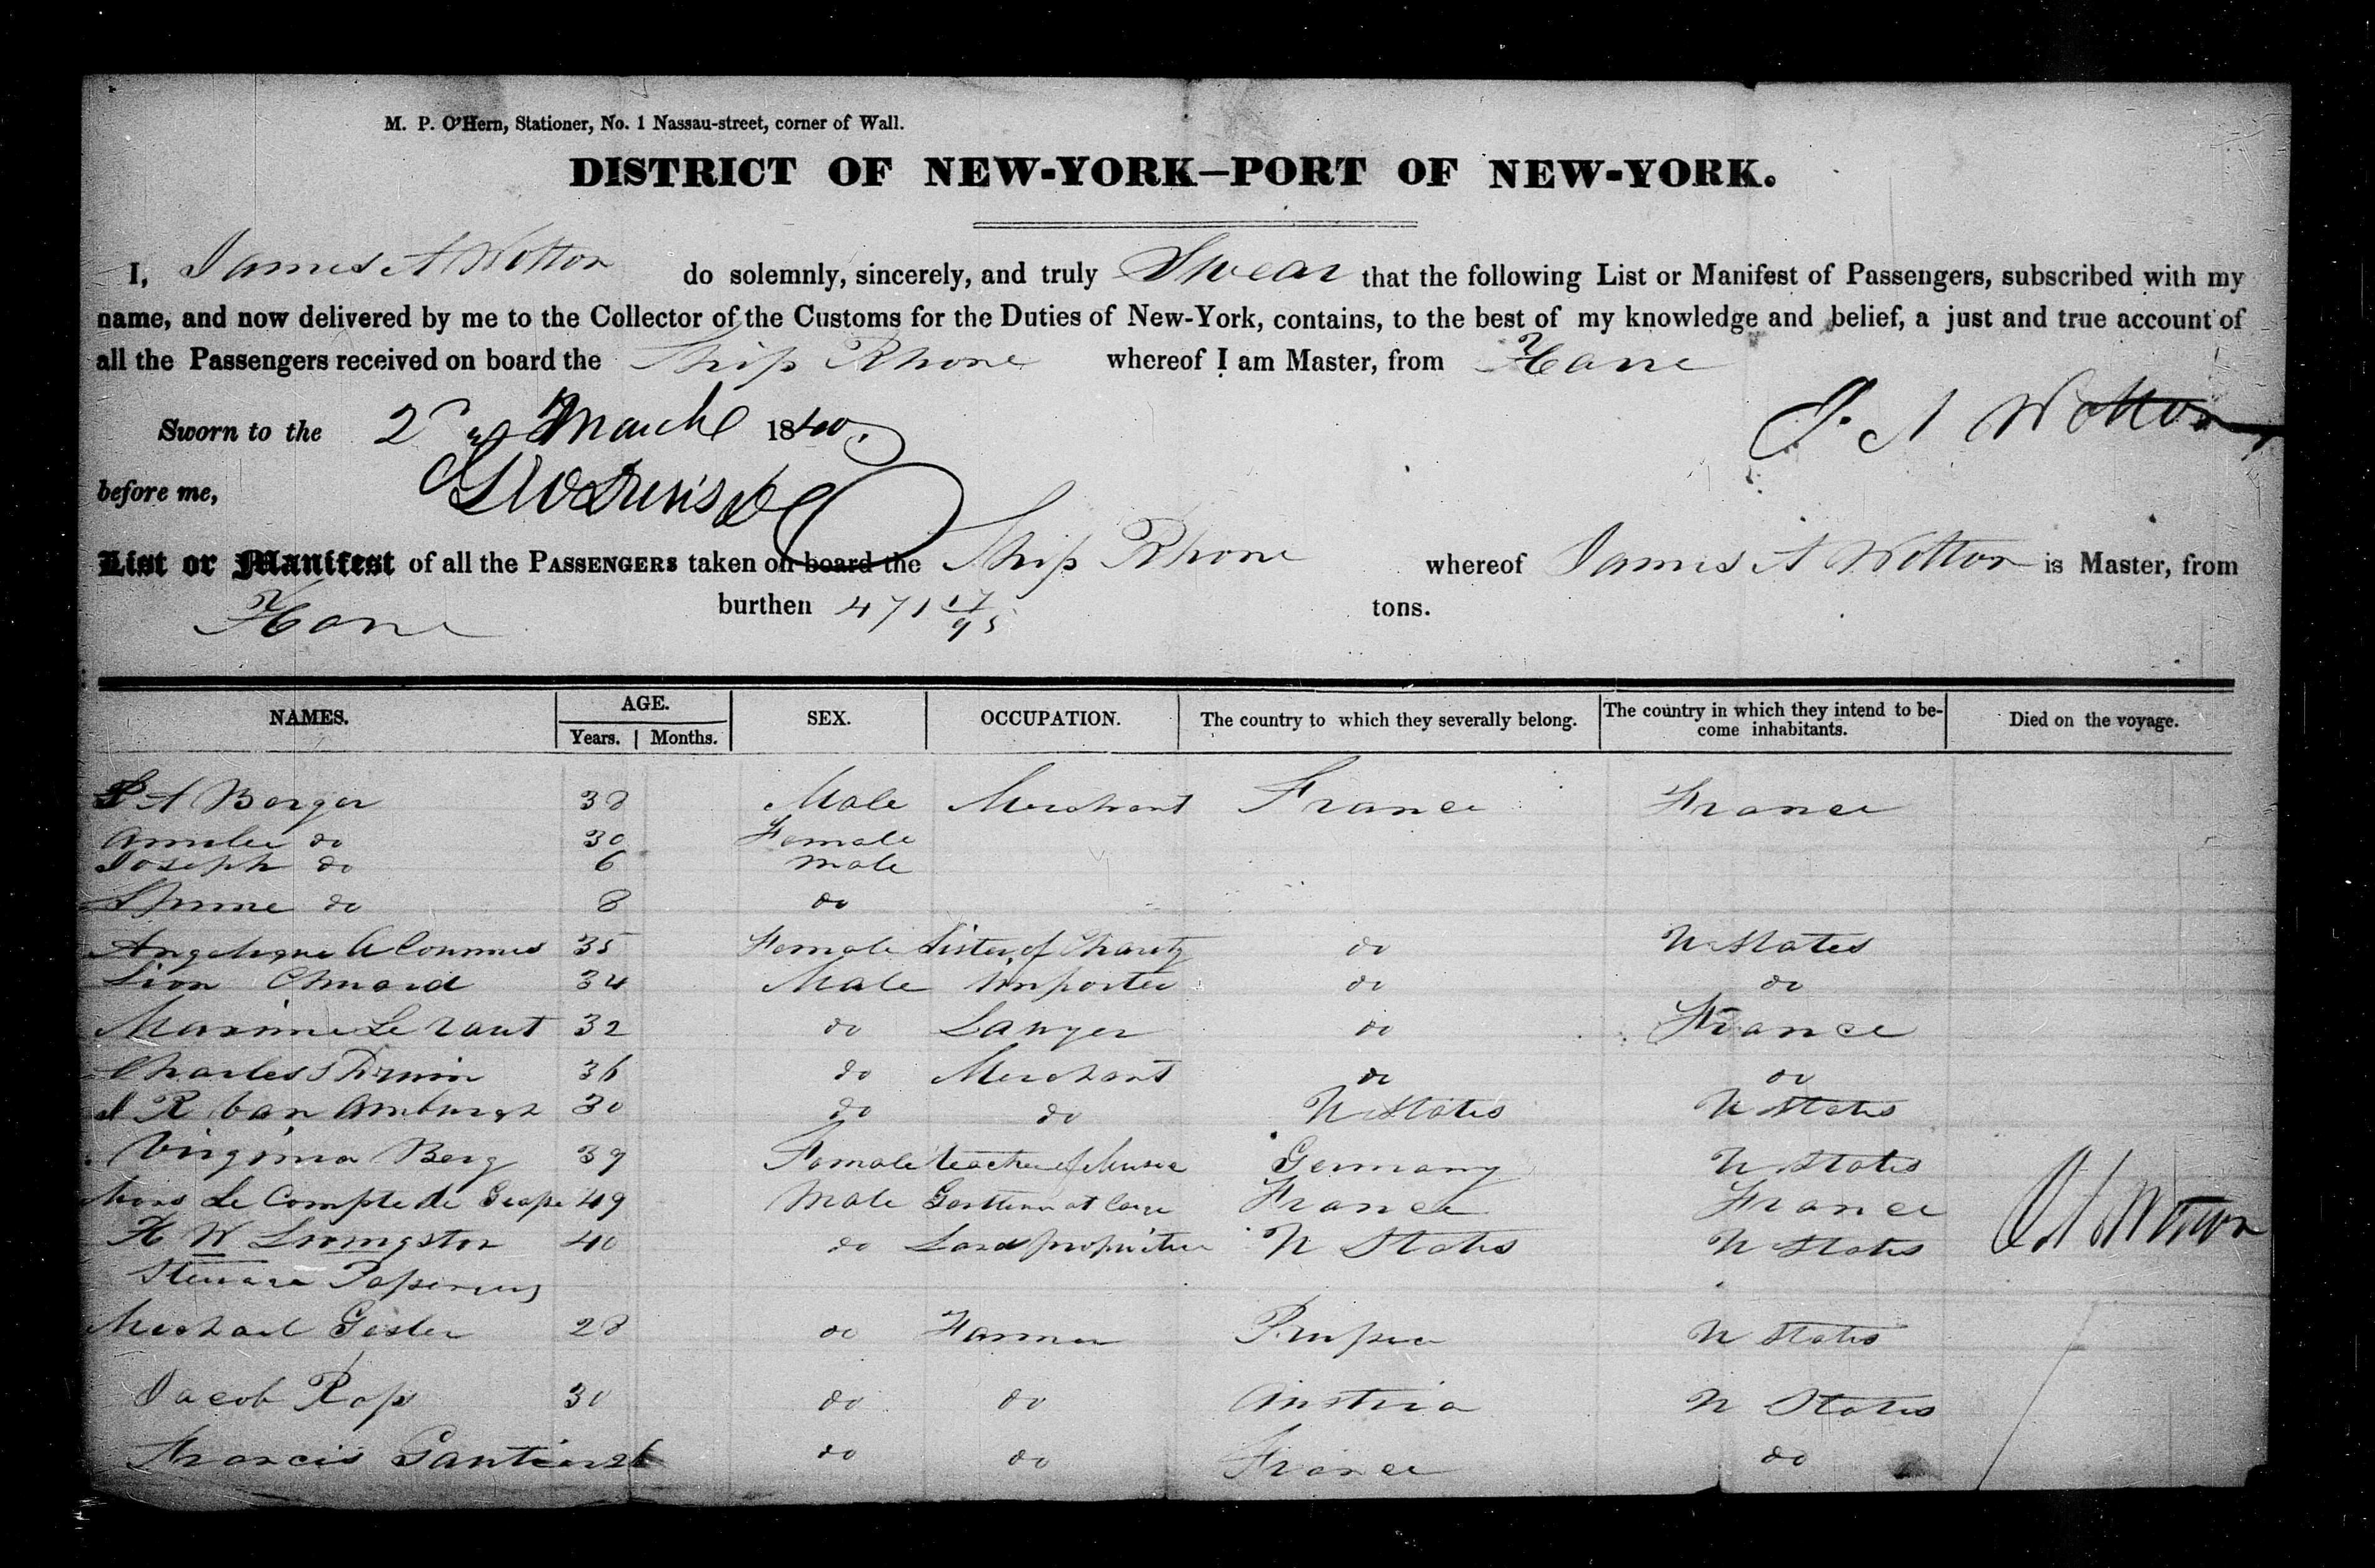 M. P. O'Hern, Stationer, No. 1 Nassau-street, corner of Wall.
DISTRICT OF NEW-YORK—PORT OF NEW-YORK.
I, James A Wotton do solemnly, sincerely, and truly Swear that the following List or Manifest of Passengers, subscribed with my
name, and now delivered by me to the Collector of the Customs for the Duties of New-York, contains, to the best of my knowledge and belief, a just and true account of
all the Passengers received on board the Ship Rhone whereof I am Master, from Havre
J. A Wotton
Sworn to the 2d March 1840.
before me,
List or Manifest of all the PASSENGERS taken on board the Ship Rhone whereof James A Wotton is Master, from
Havre burthen 471 17/95 tons.
NAMES. AGE. SEX. OCCUPATION. The country to which they severally belong. The country in which they intend to be- Died on the voyage.
Years. Months. come inhabitants.
A Berger 38 Male Merchant France France
do 30 Female
Joseph do 6 Male
do 8 do
35 Female Sister of Charity do U States
34 Male Importer do do
Maxime 32 do Lawyer do France
Charles 36 do Merchant do do
R Van Amburgh 30 do do U States U States
Virginia Berg 39 Female teacher of Music Germany U States
Mons Le Compte de 49 Male Gentleman at large France France
H W Livingston 40 do Land proprietor U States U States
J A Wotton
Steerage Passengers
Michael Gesler 28 do Farmer Prussia U States
Jacob Rap 30 do do Austria U States
Francis Gautier 26 do do France do